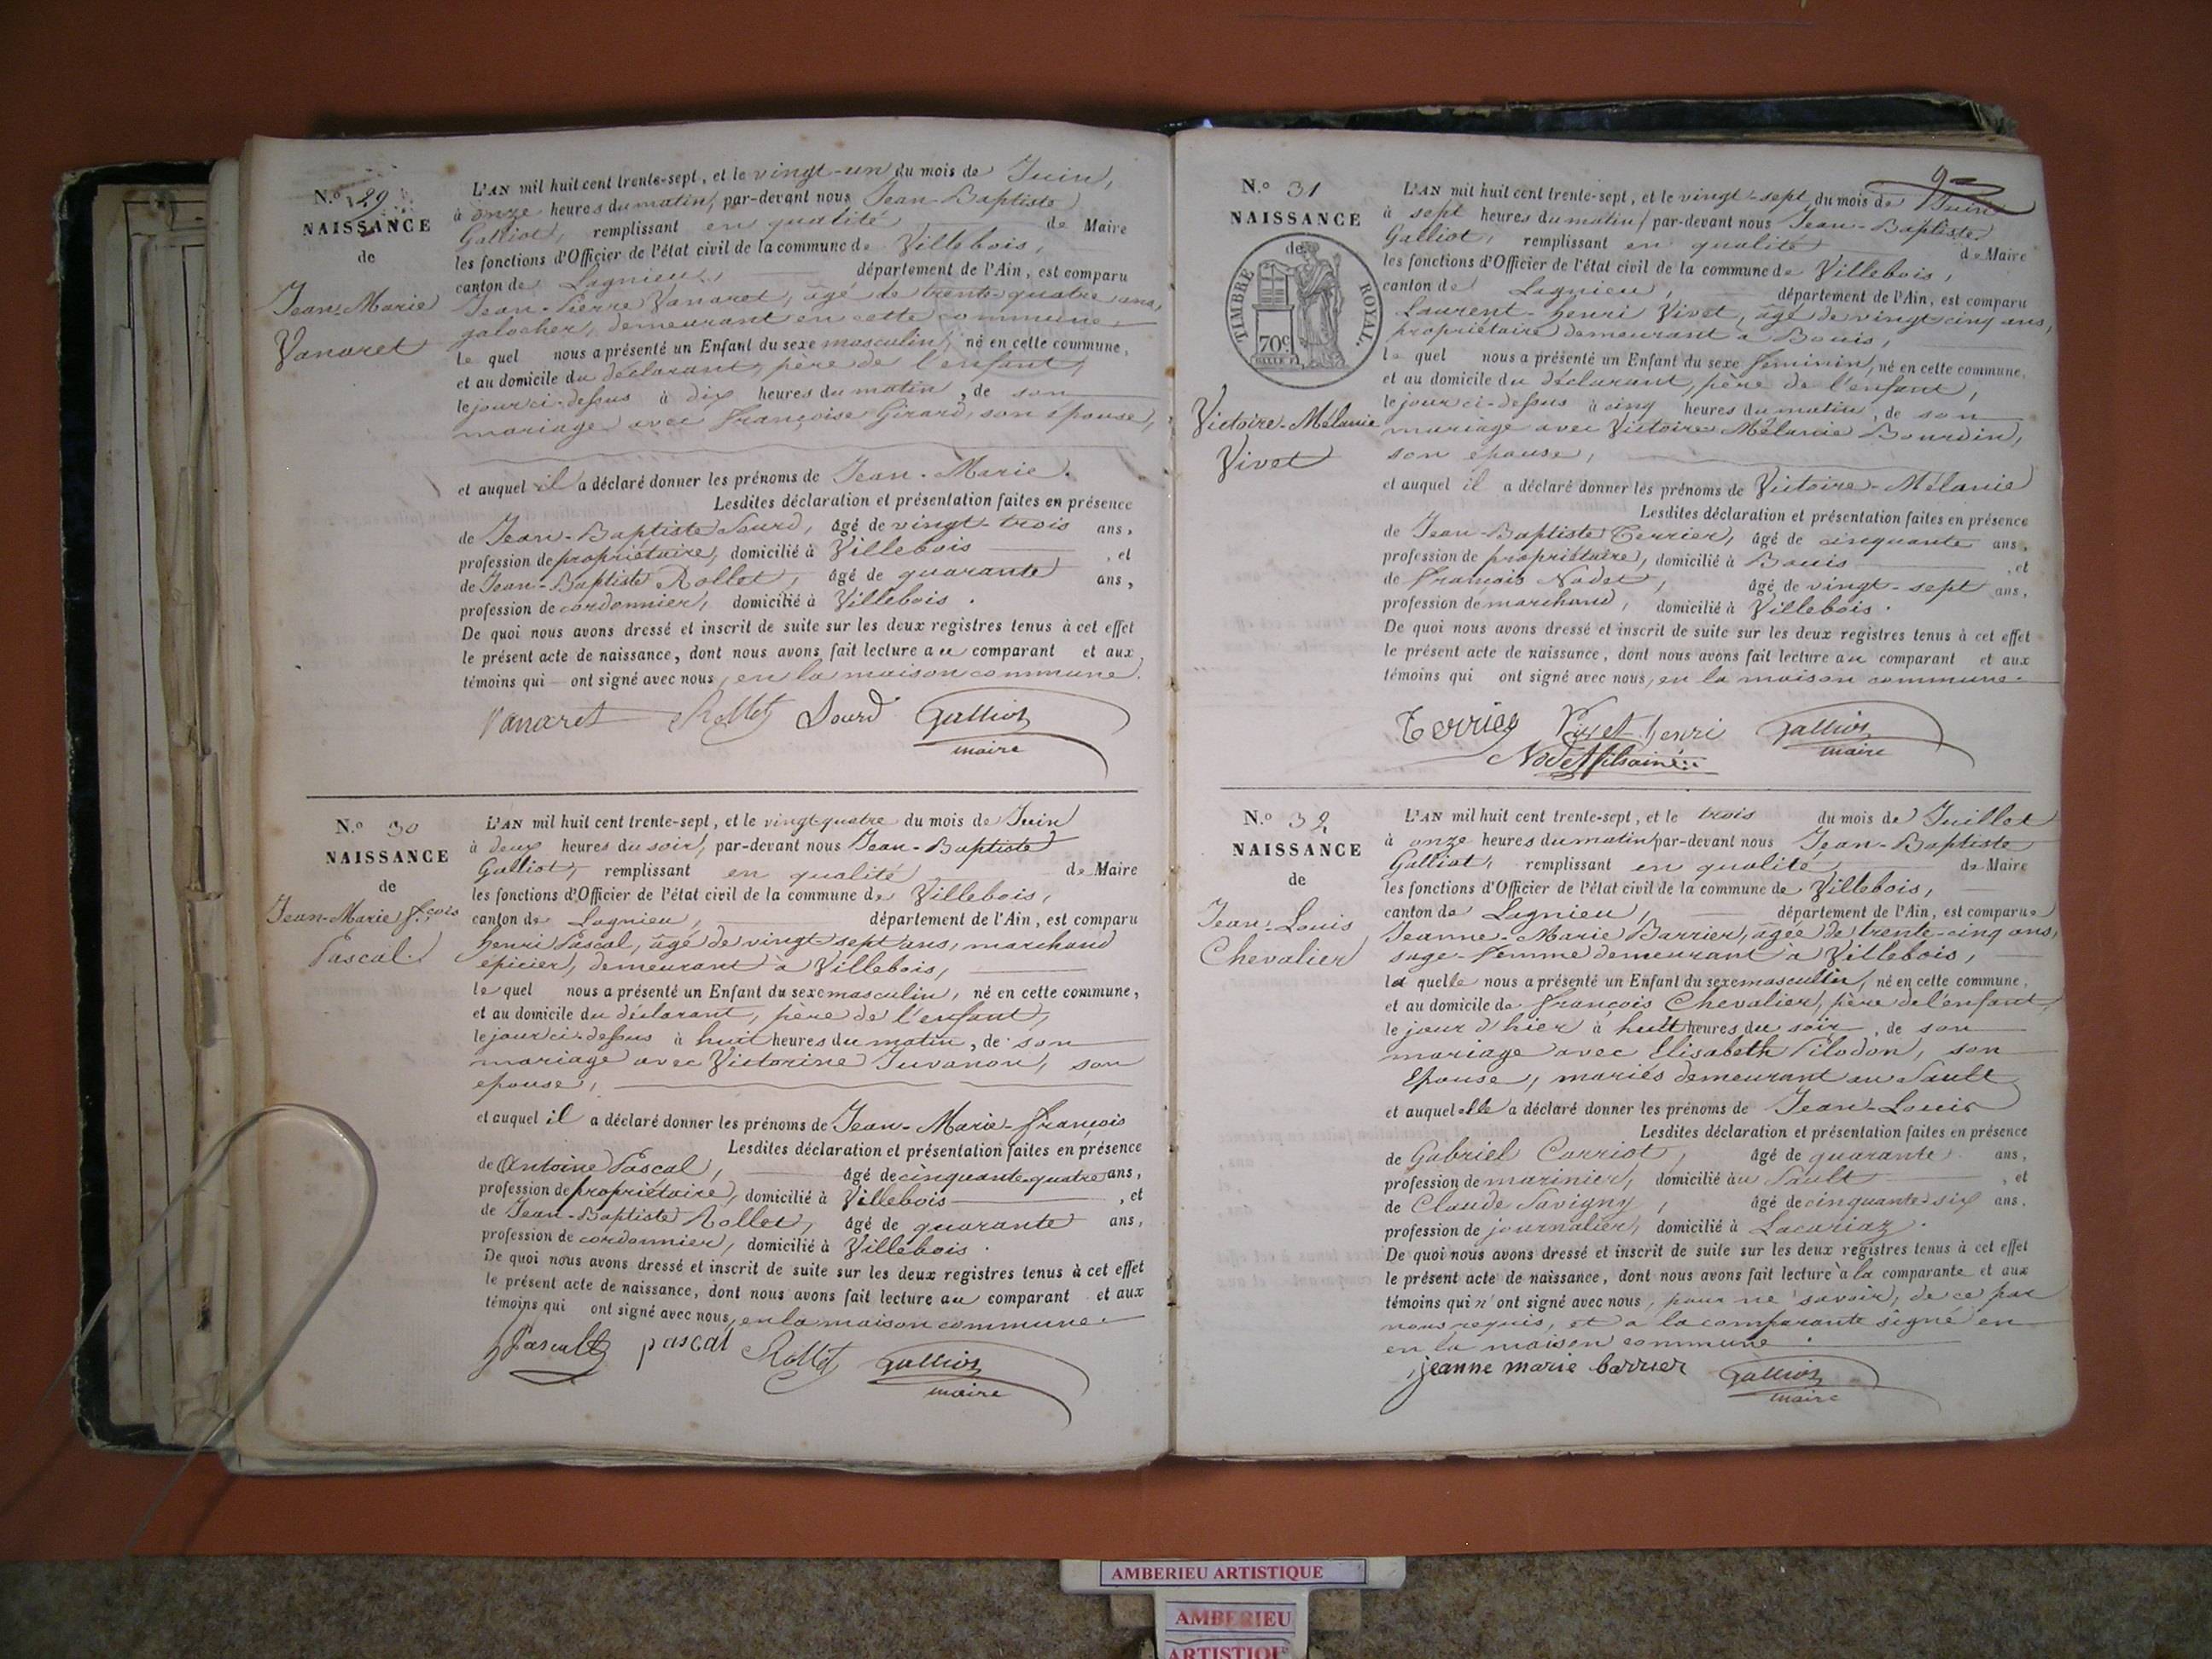 N.º 29
NAISSANCE
de
Jean-Marie
Vanaret
L'AN mil huit cent trente-sept, et le vingt-un du mois de Juin,
à onze heures du matin, par-devant nous Jean-Baptiste
Galliot, remplissant en qualité de Maire
les fonctions d'Officier de l'état civil de la commune de Villebois,
canton de Lagnieu, département de l'Ain, est comparu
Jean-Pierre Vanaret, âgé de trente-quatre ans,
galocher, demeurant en cette commune,
le quel nous a présenté un Enfant du sexe masculin, né en cette commune,
et au domicile du déclarant, père de l'enfant,
le jour ci-dessus à dix heures du matin, de son
mariage avec Françoise Girard, son épouse,
et auquel il a déclaré donner les prénoms de Jean-Marie.
Lesdites déclaration et présentation faites en présence
de Jean-Baptiste Sourd, âgé de vingt-trois ans,
profession de propriétaire, domicilié à Villebois, et
de Jean-Baptiste Rollet, âgé de quarante ans,
profession de cordonnier, domicilié à Villebois.
De quoi nous avons dressé et inscrit de suite sur les deux registres tenus à cet effet
le présent acte de naissance, dont nous avons fait lecture au comparant et aux
témoins qui ont signé avec nous, en la maison commune.
Vanaret Rollet Sourd Galliot
maire
N.º 30
NAISSANCE
de
Jean-Marie f.çois
Pascal.
L'AN mil huit cent trente-sept, et le vingt-quatre du mois de Juin
à deux heures du soir, par-devant nous Jean-Baptiste
Galliot, remplissant en qualité de Maire
les fonctions d'Officier de l'état civil de la commune de Villebois,
canton de Lagnieu, département de l'Ain, est comparu
henri Pascal, âgé de vingt-sept ans, marchand
épicier, demeurant à Villebois,
le quel nous a présenté un Enfant du sexe masculin, né en cette commune,
et au domicile du déclarant, père de l'enfant,
le jour ci-dessus à huit heures du matin, de son
mariage avec Victorine Juvanon, son
epouse,
et auquel il a déclaré donner les prénoms de Jean-Marie-françois
Lesdites déclaration et présentation faites en présence
de Antoine Pascal, âgé de cinquante-quatre ans,
profession de propriétaire, domicilié à Villebois, et
de Jean-Baptiste Rollet, âgé de quarante ans,
profession de cordonnier, domicilié à Villebois.
De quoi nous avons dressé et inscrit de suite sur les deux registres tenus à cet effet
le présent acte de naissance, dont nous avons fait lecture au comparant et aux
témoins qui ont signé avec nous, en la maison commune.
pascal Rollet Galliot
maire
9
N.º 31
NAISSANCE
de
TIMBRE ROYAL.
70c
Victoire-Mélanie
Vivet
L'AN mil huit cent trente-sept, et le vingt-sept du mois de Juin
à sept heures du matin, par-devant nous Jean-Baptiste
Galliot, remplissant en qualité de Maire
les fonctions d'Officier de l'état civil de la commune de Villebois,
canton de Lagnieu, département de l'Ain, est comparu
Laurent-henri Vivet, âgé de vingt cinq ans,
propriétaire demeurant à Bouis,
le quel nous a présenté un Enfant du sexe féminin, né en cette commune,
et au domicile du déclarant, père de l'enfant,
le jour ci-dessus à cinq heures du matin, de son
mariage avec Victoire Mélanie Bourdin,
son épouse,
et auquel il a déclaré donner les prénoms de Victoire-Mélanie
Lesdites déclaration et présentation faites en présence
de Jean-Baptiste Terrier, âgé de cinquante ans,
profession de propriétaire, domicilié à Bouis, et
de François Nodet, âgé de vingt-sept ans,
profession de marchand, domicilié à Villebois.
De quoi nous avons dressé et inscrit de suite sur les deux registres tenus à cet effet
le présent acte de naissance, dont nous avons fait lecture au comparant et aux
témoins qui ont signé avec nous, en la maison commune.
Terrier Vivet henri Galliot
Nodet fils ainé maire
N.º 32
NAISSANCE
de
Jean-Louis
Chevalier
L'AN mil huit cent trente-sept, et le trois du mois de Juillet
à onze heures du matin par-devant nous Jean-Baptiste
Galliot, remplissant en qualité de Maire
les fonctions d'Officier de l'état civil de la commune de Villebois,
canton de Lagnieu, département de l'Ain, est comparue
Jeanne-Marie Barrier, âgée de trente-cinq ans,
sage-femme demeurant à Villebois,
la quelle nous a présenté un Enfant du sexe masculin, né en cette commune,
et au domicile de françois Chevalier, père de l'enfant,
le jour d'hier à huit heures du soir, de son
mariage avec Elisabeth Pilodon, son
Epouse, mariés demeurant au Sault
et auquel elle a déclaré donner les prénoms de Jean-Louis
Lesdites déclaration et présentation faites en présence
de Gabriel Carriot, âgé de quarante ans,
profession de marinier, domicilié au Sault, et
de Claude Savigny, âgé de cinquante-six ans,
profession de journalier, domicilié à Lacariaz.
De quoi nous avons dressé et inscrit de suite sur les deux registres tenus à cet effet
le présent acte de naissance, dont nous avons fait lecture à la comparante et aux
témoins qui n'ont signé avec nous, pour ne savoir, de ce par
nous requis, et a la comparante signé en
en la maison commune.
jeanne marie barrier Galliot
maire
AMBERIEU ARTISTIQUE
AMBERIEU
ARTISTIQUE